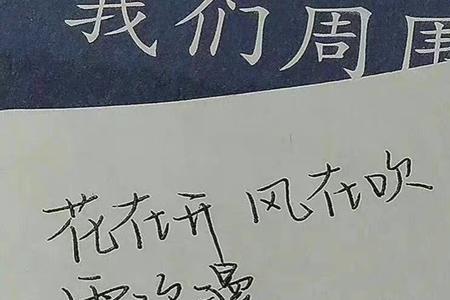 我们周围
花在开 风在吹